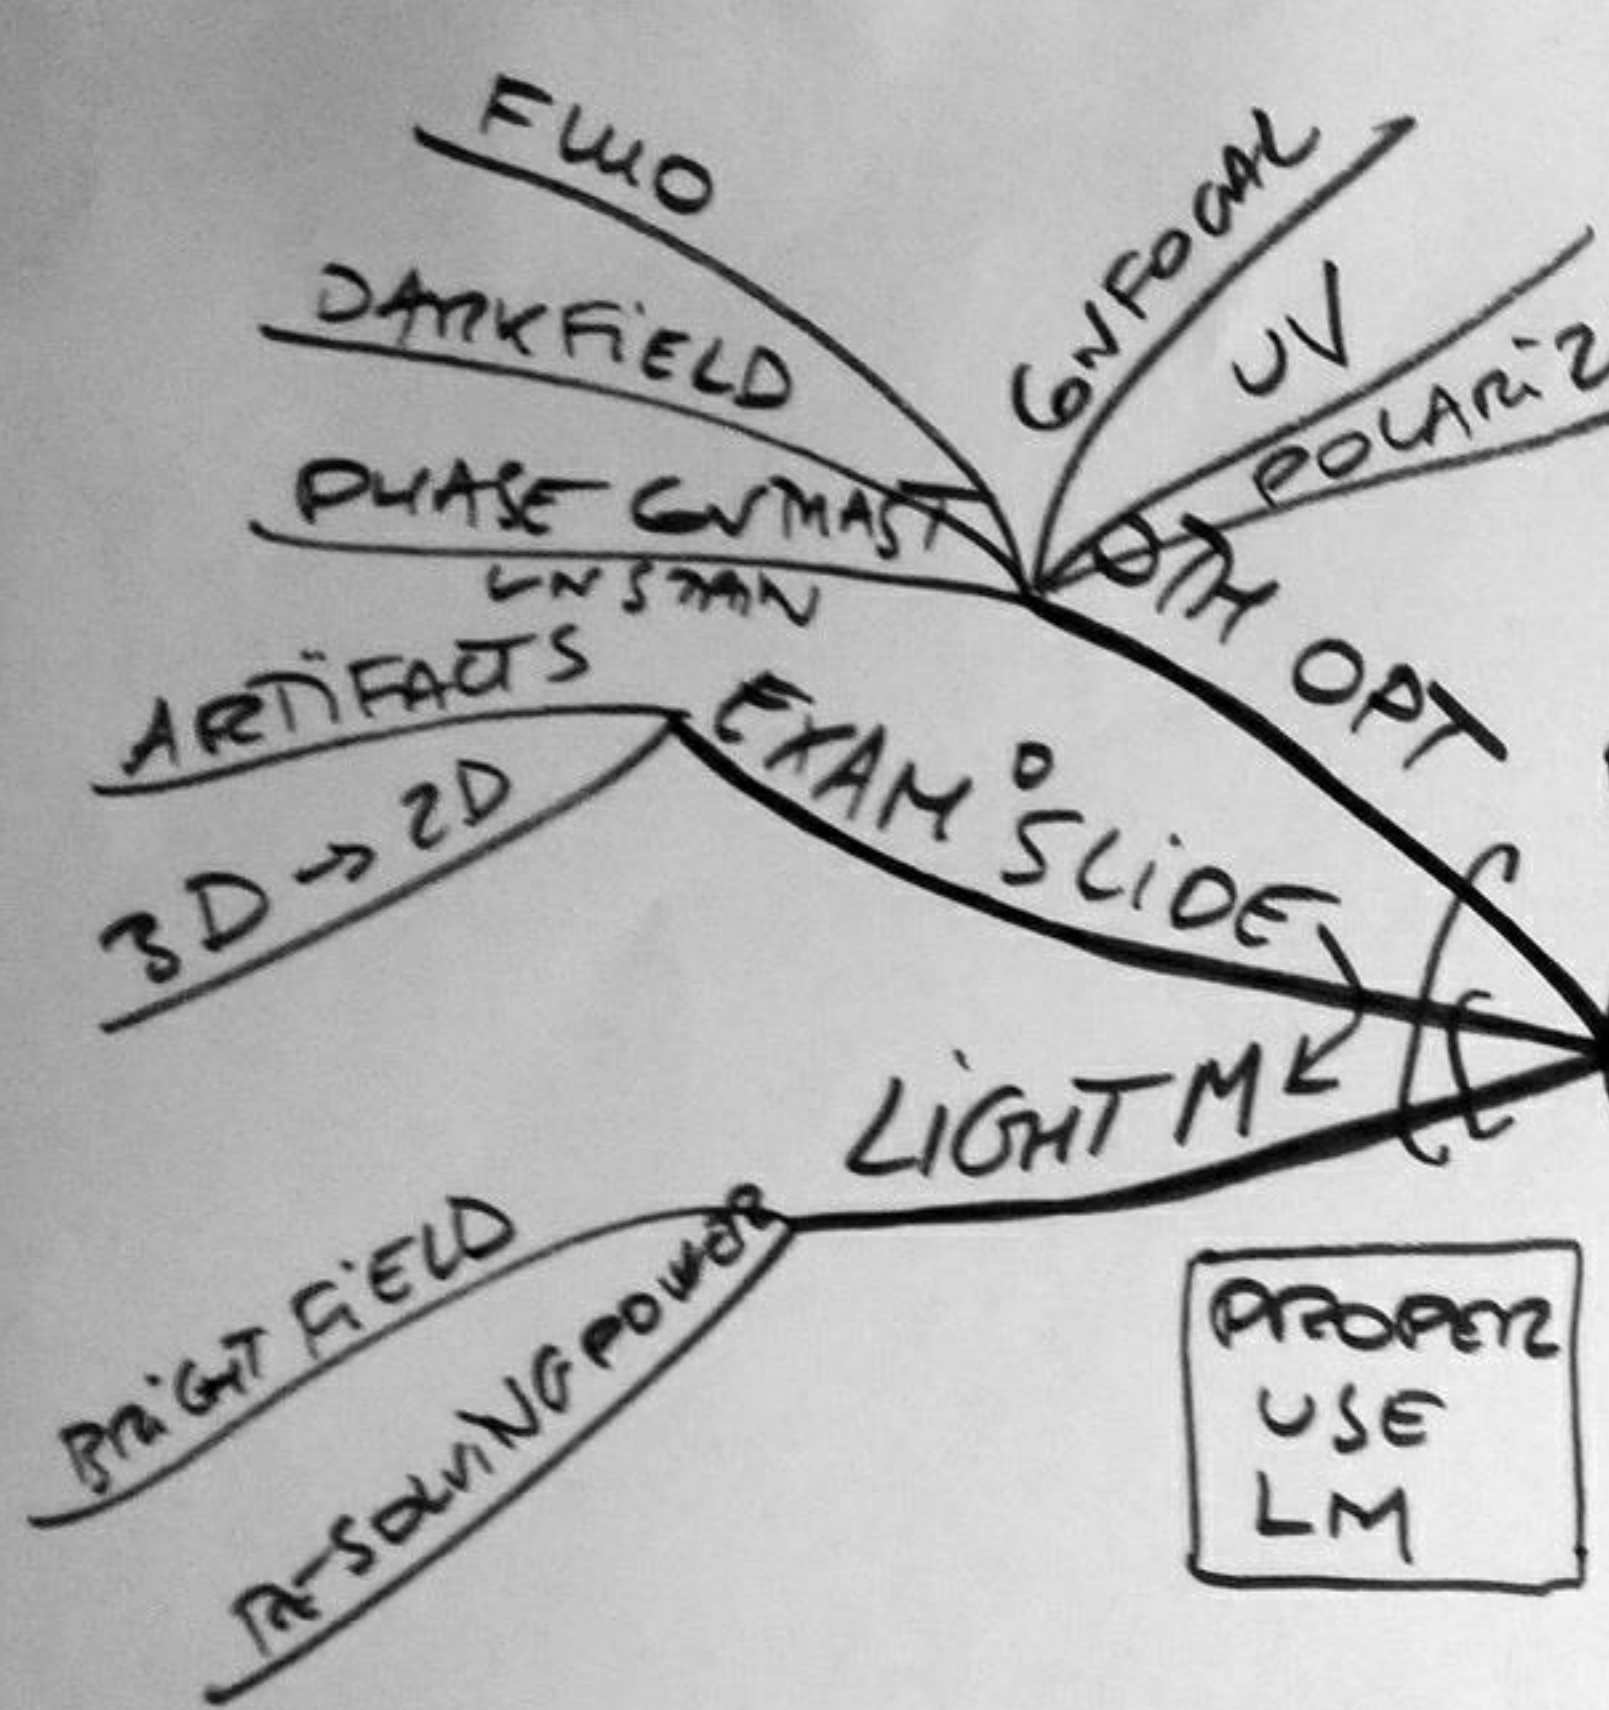 FLUO
DARKFIELD
PHASE CONTRAST
UNSTAIN
CONFOCAL
UV
POLARIZ
OTH OPT
ARTIFACTS
3D → 2D
EXAM° SLIDE
LIGHT M
BRIGHT FIELD
RESOLVING POWER
PROPER
USE
LM